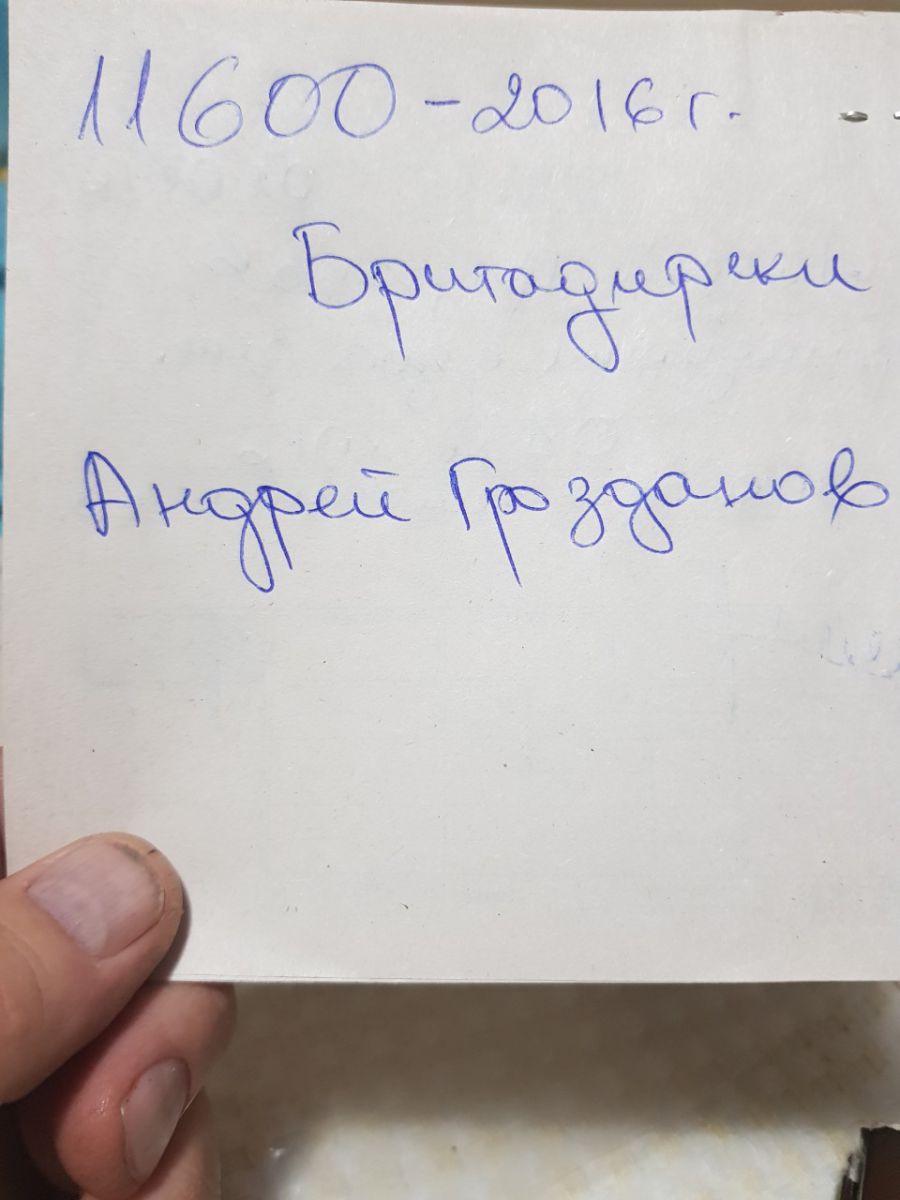 11600 - 2016 г.
Бригадирски
Андрей Грозданов